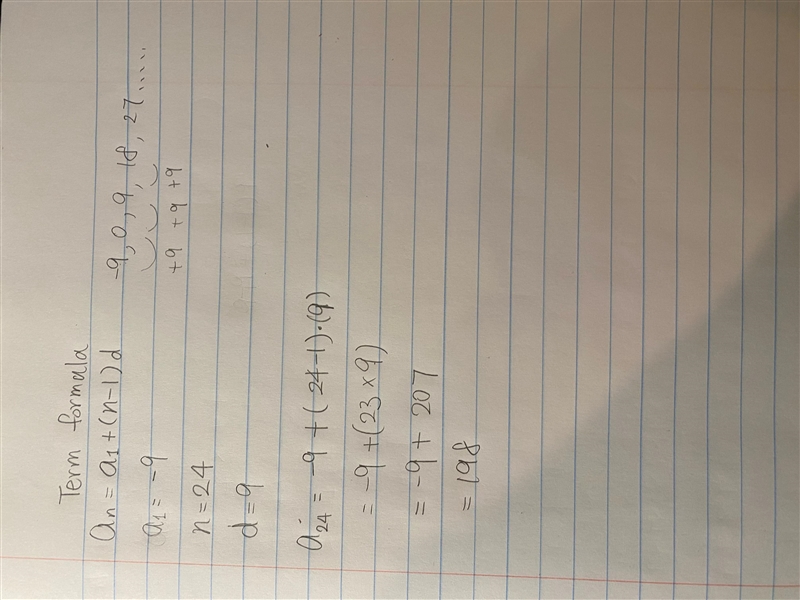 Term formala
an = a1 + (n-1)d -9, 0, 9, 18, 27......
a1 = -9 +9 +9 +9
n = 24
d = 9
a24 = -9 + (24-1)·(9)
= -9 + (23 × 9)
= -9 + 207
= 198